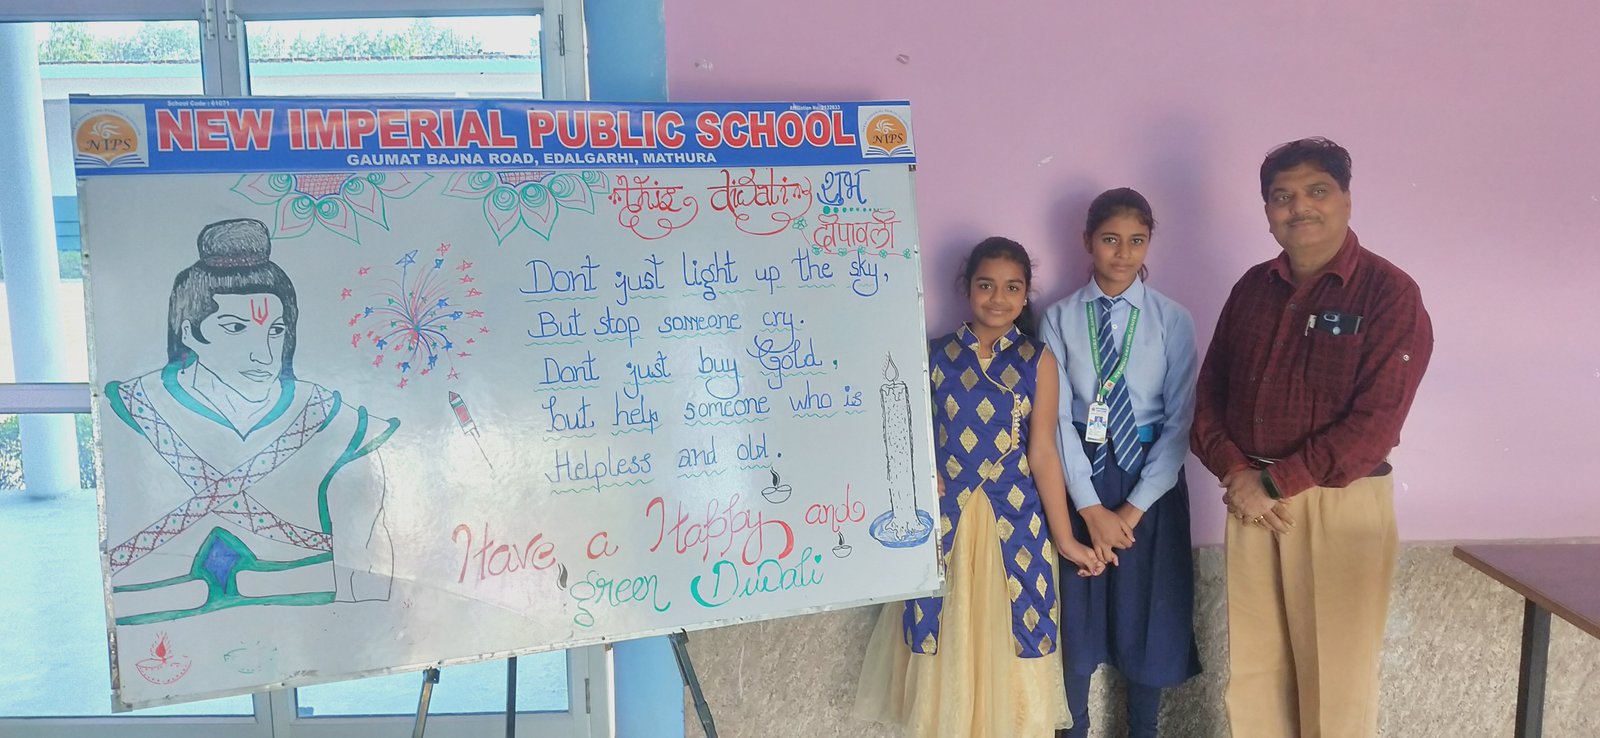 School Code : 61071
Affiliation No. 2132633
NIPS
NEW IMPERIAL PUBLIC SCHOOL
NIPS
GAUMAT BAJNA ROAD, EDALGARHI, MATHURA
This diwali शुभ
दीपावली
Don't just light up the sky,
But stop someone cry.
Dont just buy Gold,
but help someone who is
Helpless and old.
Have a Happy and
green Diwali